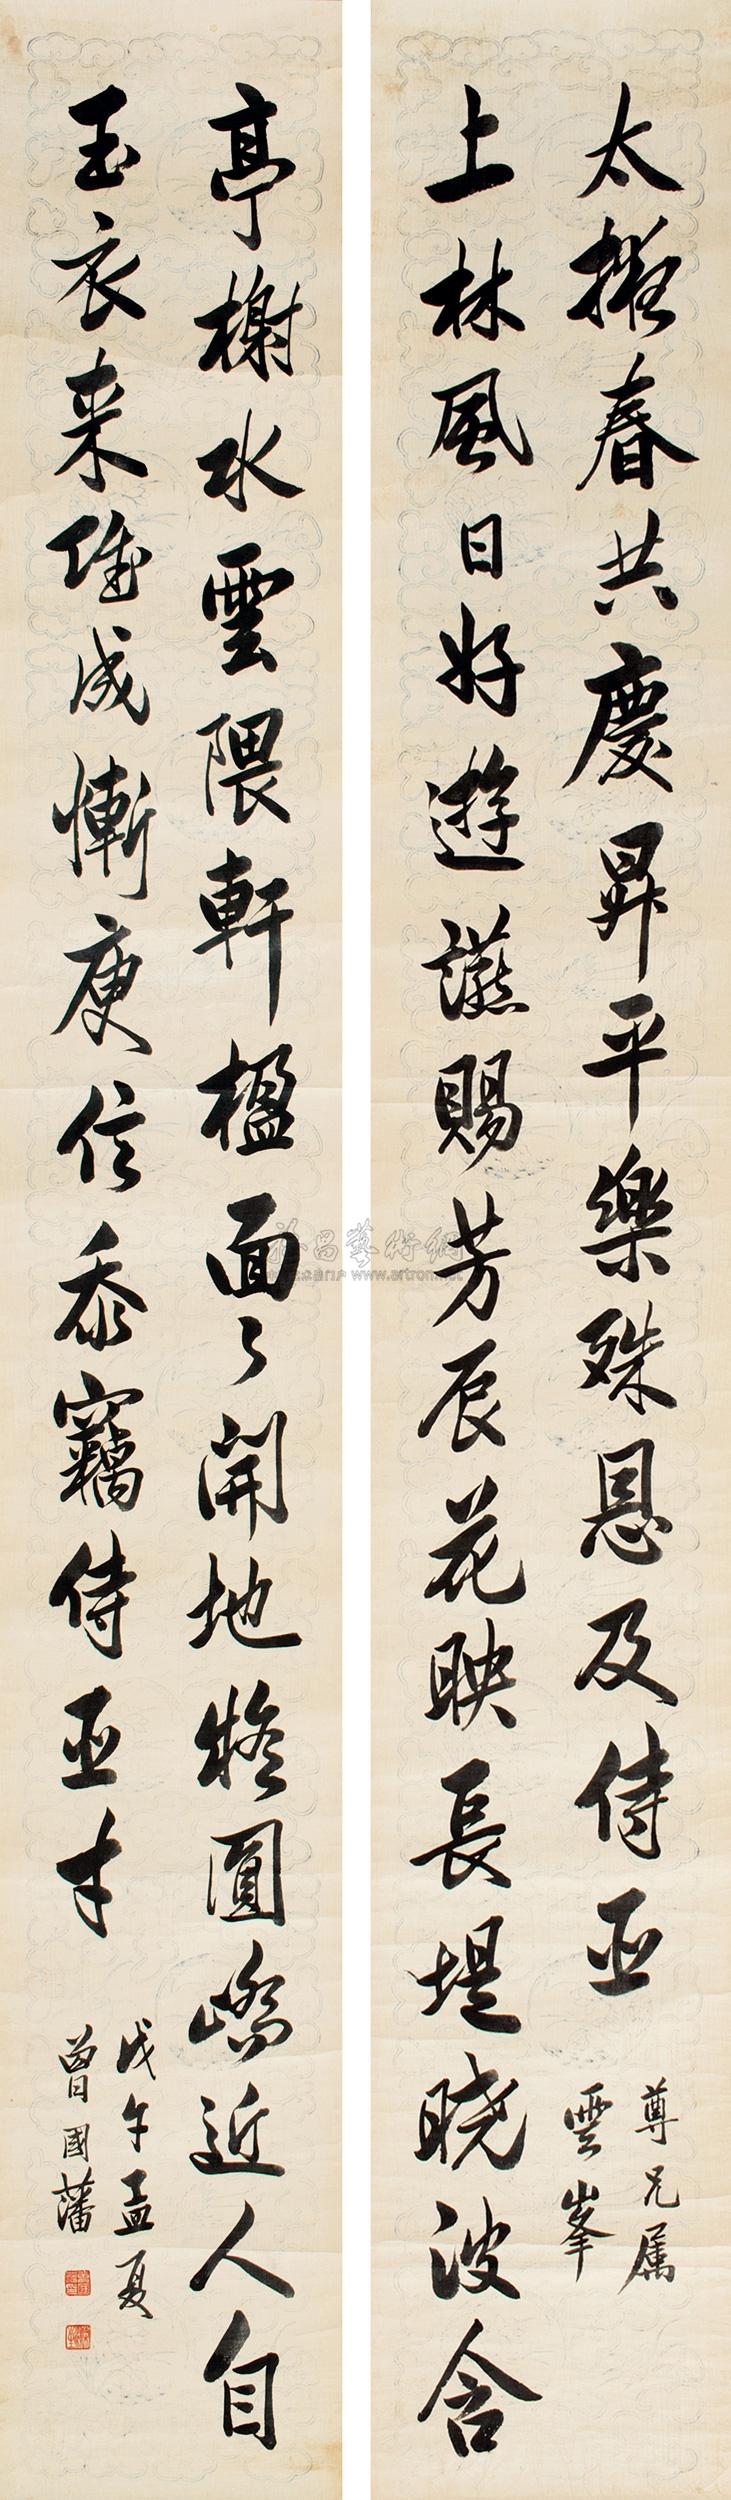 上林風日好遊讌賜芳辰花映長堤曉波含
太掖春共慶昇平樂殊恩及侍臣
雲峯
尊兄屬
亭榭水雲隈軒楹面々開地將圓嶠近人自
玉衣來賦成慚庾信忝竊侍臣才
戊午孟夏
曾國藩
雅昌藝術網
www.artron.net